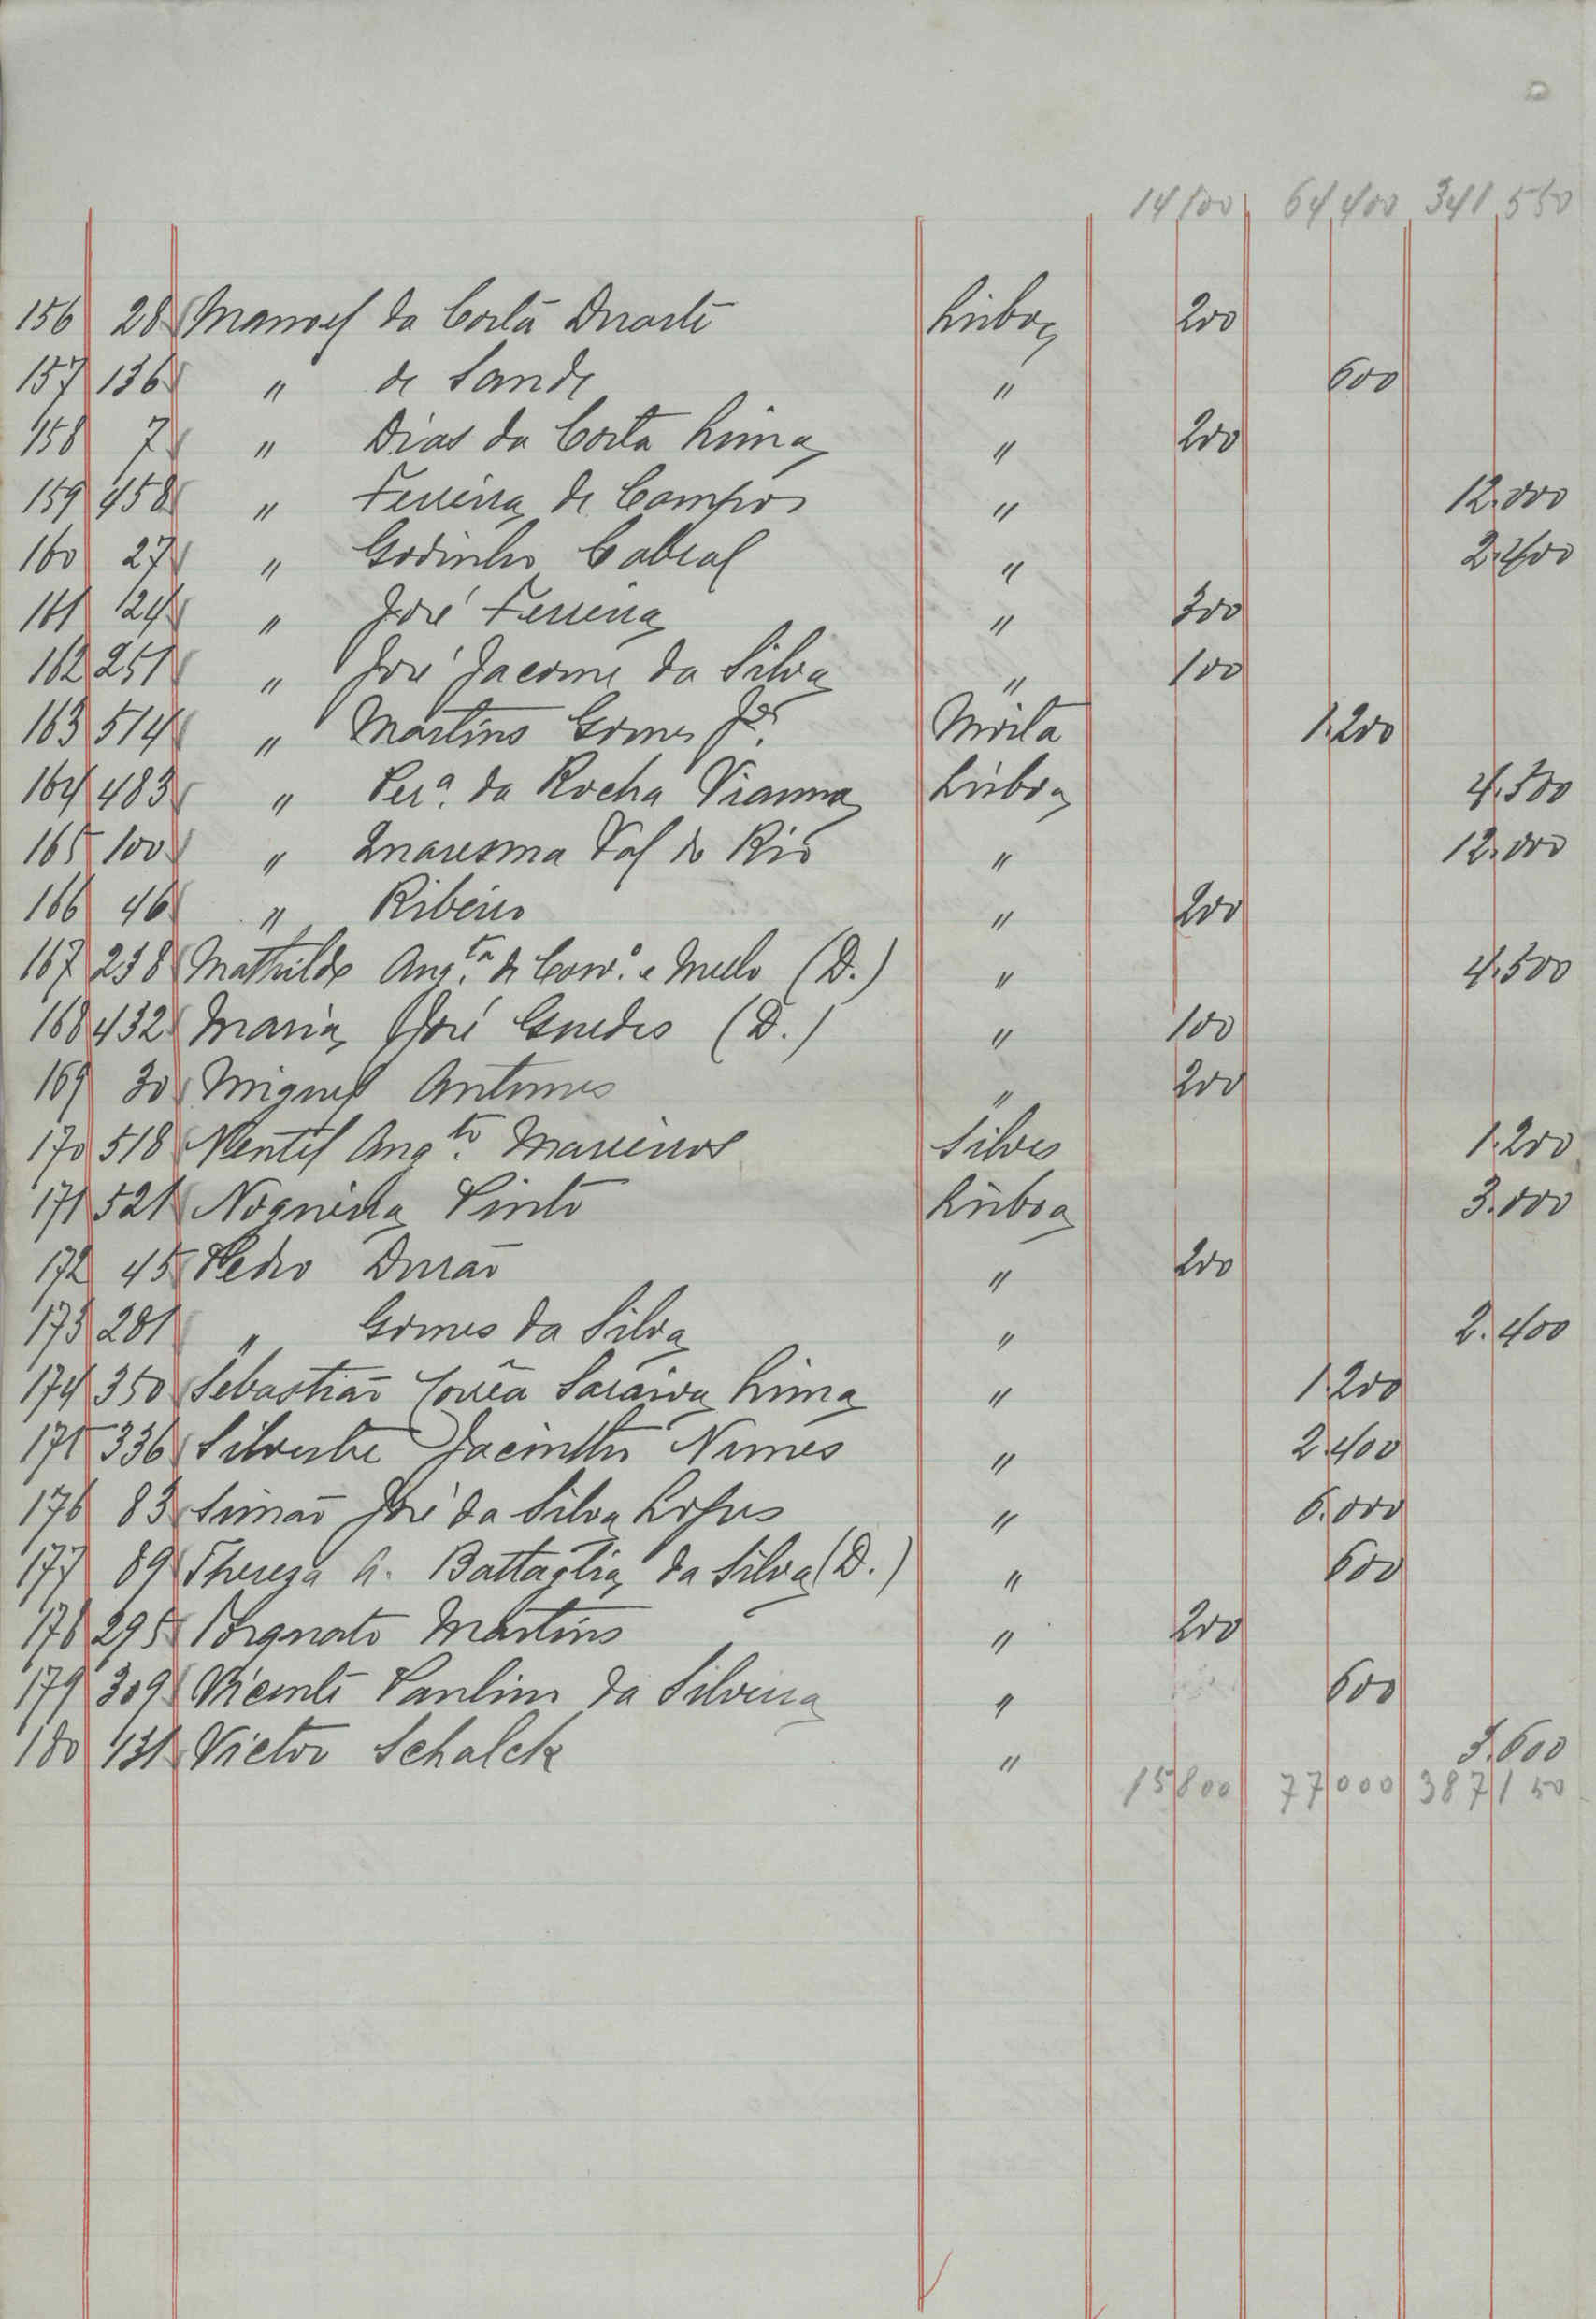 14 100 64 400 341 550
156 28 Manoel da Costa Duarte Lisboa 200
157 136 " de Sande " 600
158 7 " Dias da Costa Lima " 200
159 458 " Ferreira de Campos " 12.000
160 27 " Godinho Cabral " 2.400
161 24 " José Ferreira " 300
162 251 " José Jacome da Silva " 100
163 514 " Martins Gomes Jor. Moita 1.200
164 483 " Perª. da Rocha Vianna Lisboa 4.500
165 100 " Quaresma Val do Rio " 12.000
166 46 " Ribeiro " 200
167 238 Mathilde Augta. de Carvº. e Mello (D.) " 4.500
168 432 Maria José Guedes (D.) " 100
169 30 Miguel Antunes " 200
170 518 Nentel Augto. Marreiros Silves 1.200
171 521 Nogueira Pinto Lisboa 3.000
172 45 Pedro Durão " 200
173 281 " Gomes da Silva " 2.400
174 350 Sebastião Corrêa Saraiva Lima " 1.200
175 336 Silvestre Jacintho Nunes " 2.400
176 83 Simão José da Silva Lopes " 6.000
177 89 Thereza A. Battaglia da Silva (D.) " 600
178 295 Torquato Martins " 200
179 309 Vicente Paulino da Silveira " 600
180 131 Victor Schalck " 3.600
15 800 77 000 387 150